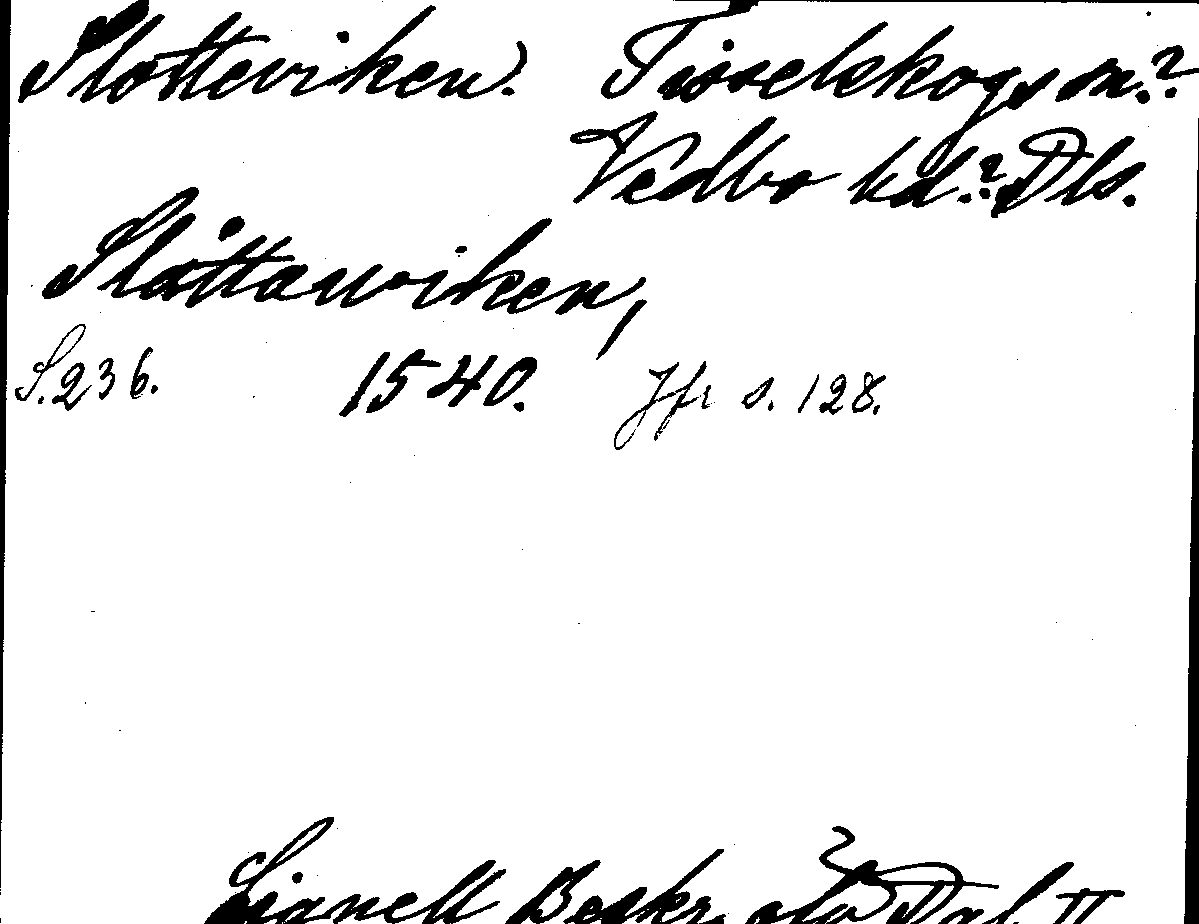 Slotteviken. Tisselskogs sn.?
Vedbo hd.? Dls.
Slåttawiken,
S. 236. 1540. Jfr s. 128.
Lignell Beskr. ofv. Dal II